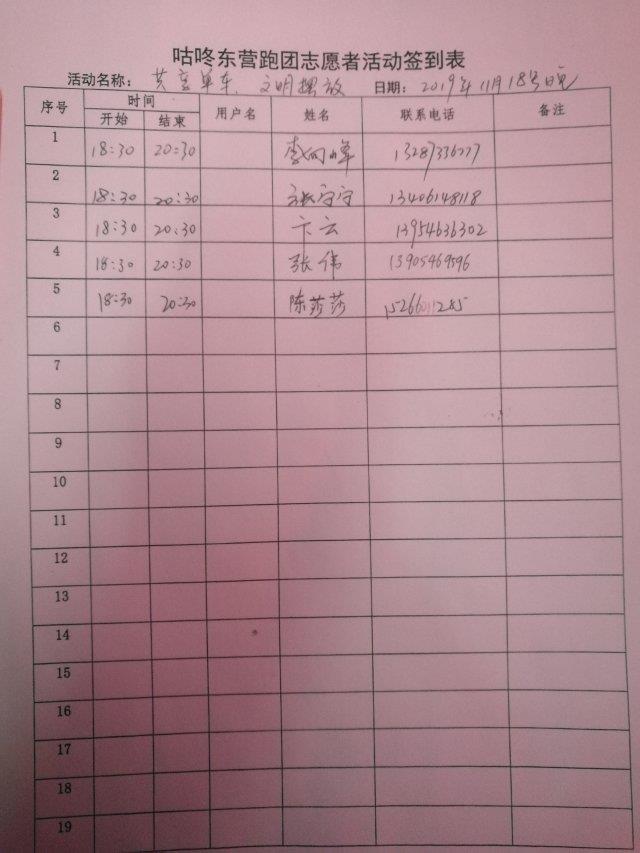 咕咚东营跑团志愿者活动签到表
活动名称： 共享单车、文明摆放 日期： 2019年11月18号晚
序号 时间 用户名 姓名 联系电话 备注
开始 结束
1 18:30 20:30 李向峰 13287336277
2 18:30 20:30 张守宁 13406148118
3 18:30 20:30 卞云 13954636302
4 18:30 20:30 张伟 13905469596
5 18:30 20:30 陈莎莎 15266011285
6
7
8
9
10
11
12
13
14
15
16
17
18
19